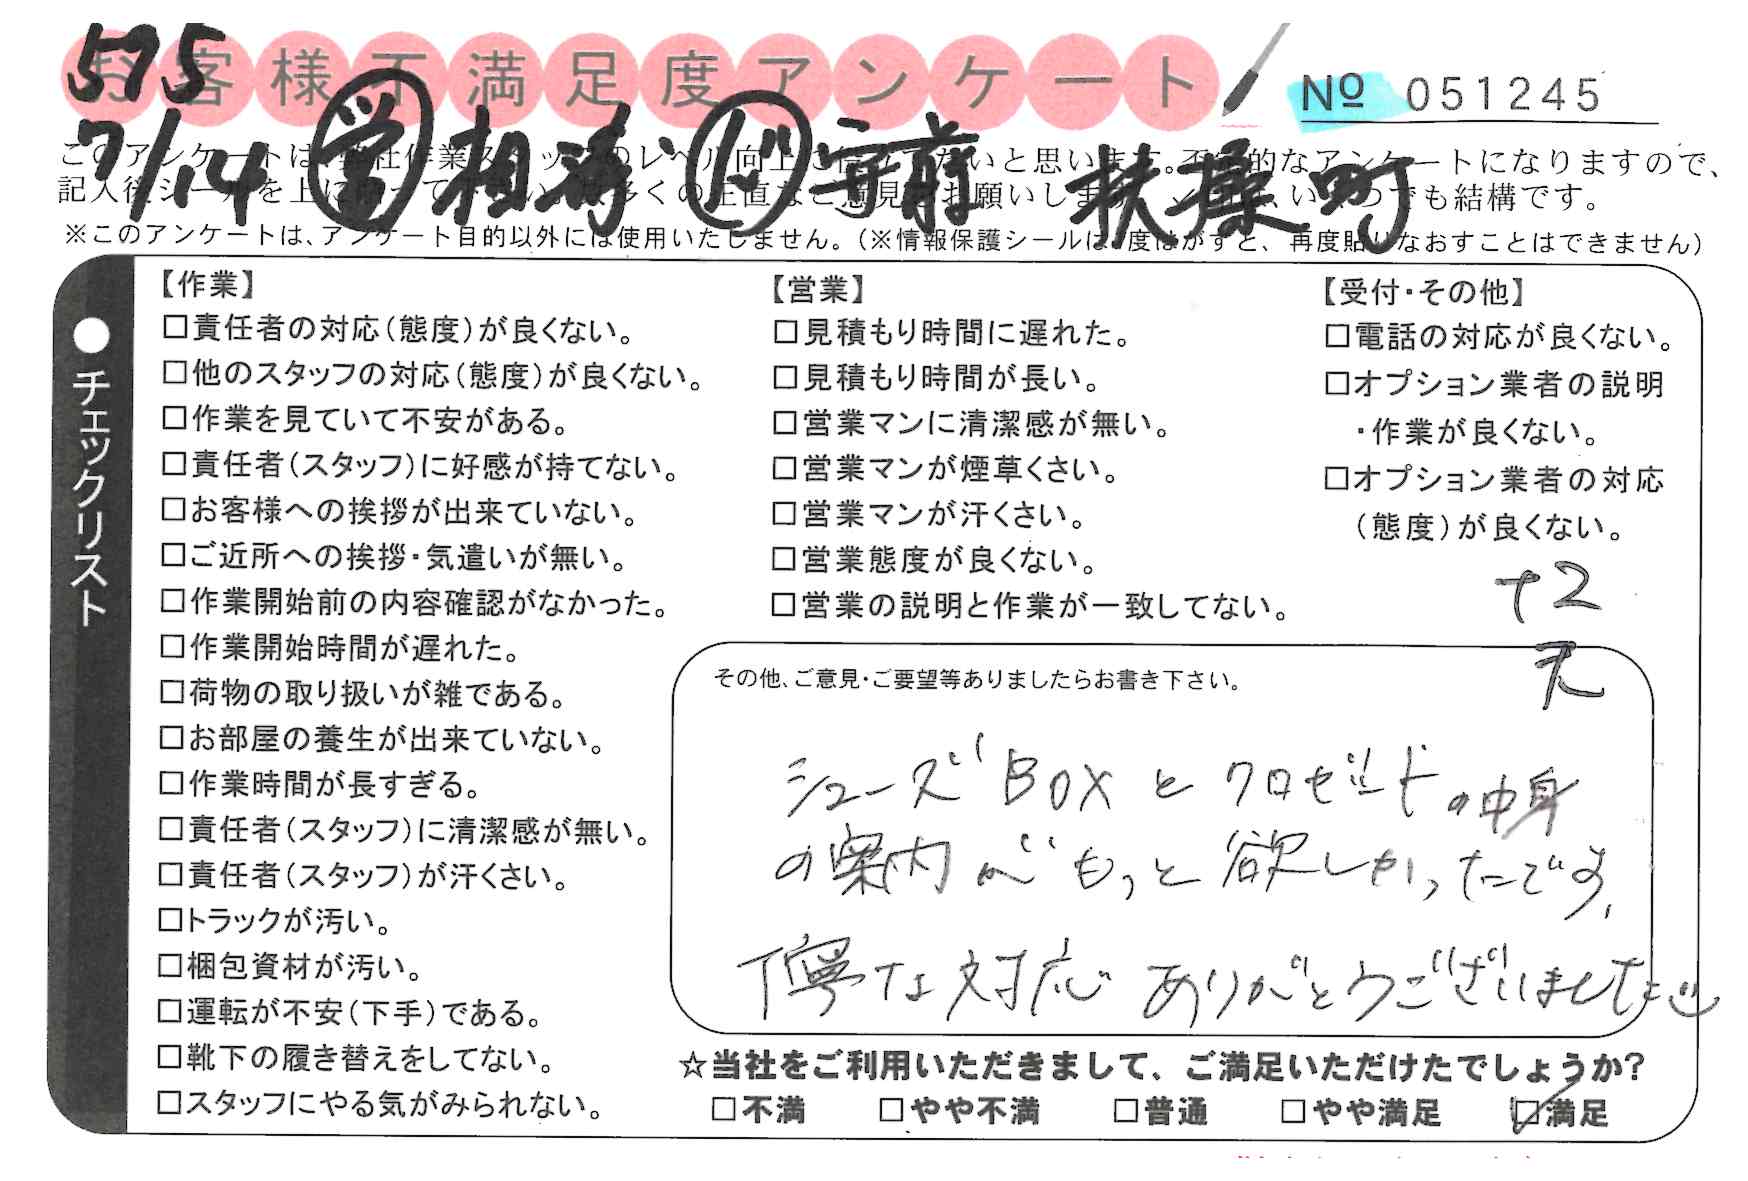 575
お客様不満足度アンケート
№ 051245
7/14 営 扶桑町
※このアンケートは、アンケート目的以外には使用いたしません。(※情報保護シールは
再度貼りなおすことはできません)
●チェックリスト
【作業】
□責任者の対応(態度)が良くない。
□他のスタッフの対応(態度)が良くない。
□作業を見ていて不安がある。
□責任者(スタッフ)に好感が持てない。
□お客様への挨拶が出来ていない。
□ご近所への挨拶・気遣いが無い。
□作業開始前の内容確認がなかった。
□作業開始時間が遅れた。
□荷物の取り扱いが雑である。
□お部屋の養生が出来ていない。
□作業時間が長すぎる。
□責任者(スタッフ)に清潔感が無い。
□責任者(スタッフ)が汗くさい。
□トラックが汚い。
□梱包資材が汚い。
□運転が不安(下手)である。
□靴下の履き替えをしてない。
□スタッフにやる気がみられない。
【営業】
□見積もり時間に遅れた。
□見積もり時間が長い。
□営業マンに清潔感が無い。
□営業マンが煙草くさい。
□営業マンが汗くさい。
□営業態度が良くない。
□営業の説明と作業が一致してない。
【受付・その他】
□電話の対応が良くない。
□オプション業者の説明
・作業が良くない。
□オプション業者の対応
(態度)が良くない。
+2
その他、ご意見・ご要望等ありましたらお書き下さい。
シューズBOXとクロゼットの中身
の案内がもっと欲しかったです。
丁寧な対応ありがとうございました
☆当社をご利用いただきまして、ご満足いただけたでしょうか?
□不満 □やや不満 □普通 □やや満足 ☑満足